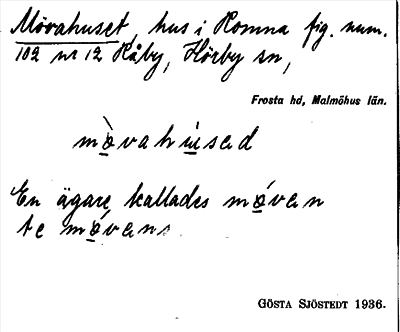 Mövahuset, hus i Romna fig. num.
102 nr 12 Råby, Hörby sn,
Frosta hd, Malmöhus län.
mòvahúsed
En ägare kallades móven
te móvens
GÖSTA SJÖSTEDT 1936.